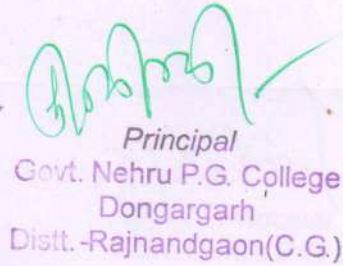 Principal
Govt. Nehru P.G. College
Dongargarh
Distt.-Rajnandgaon(C.G.)